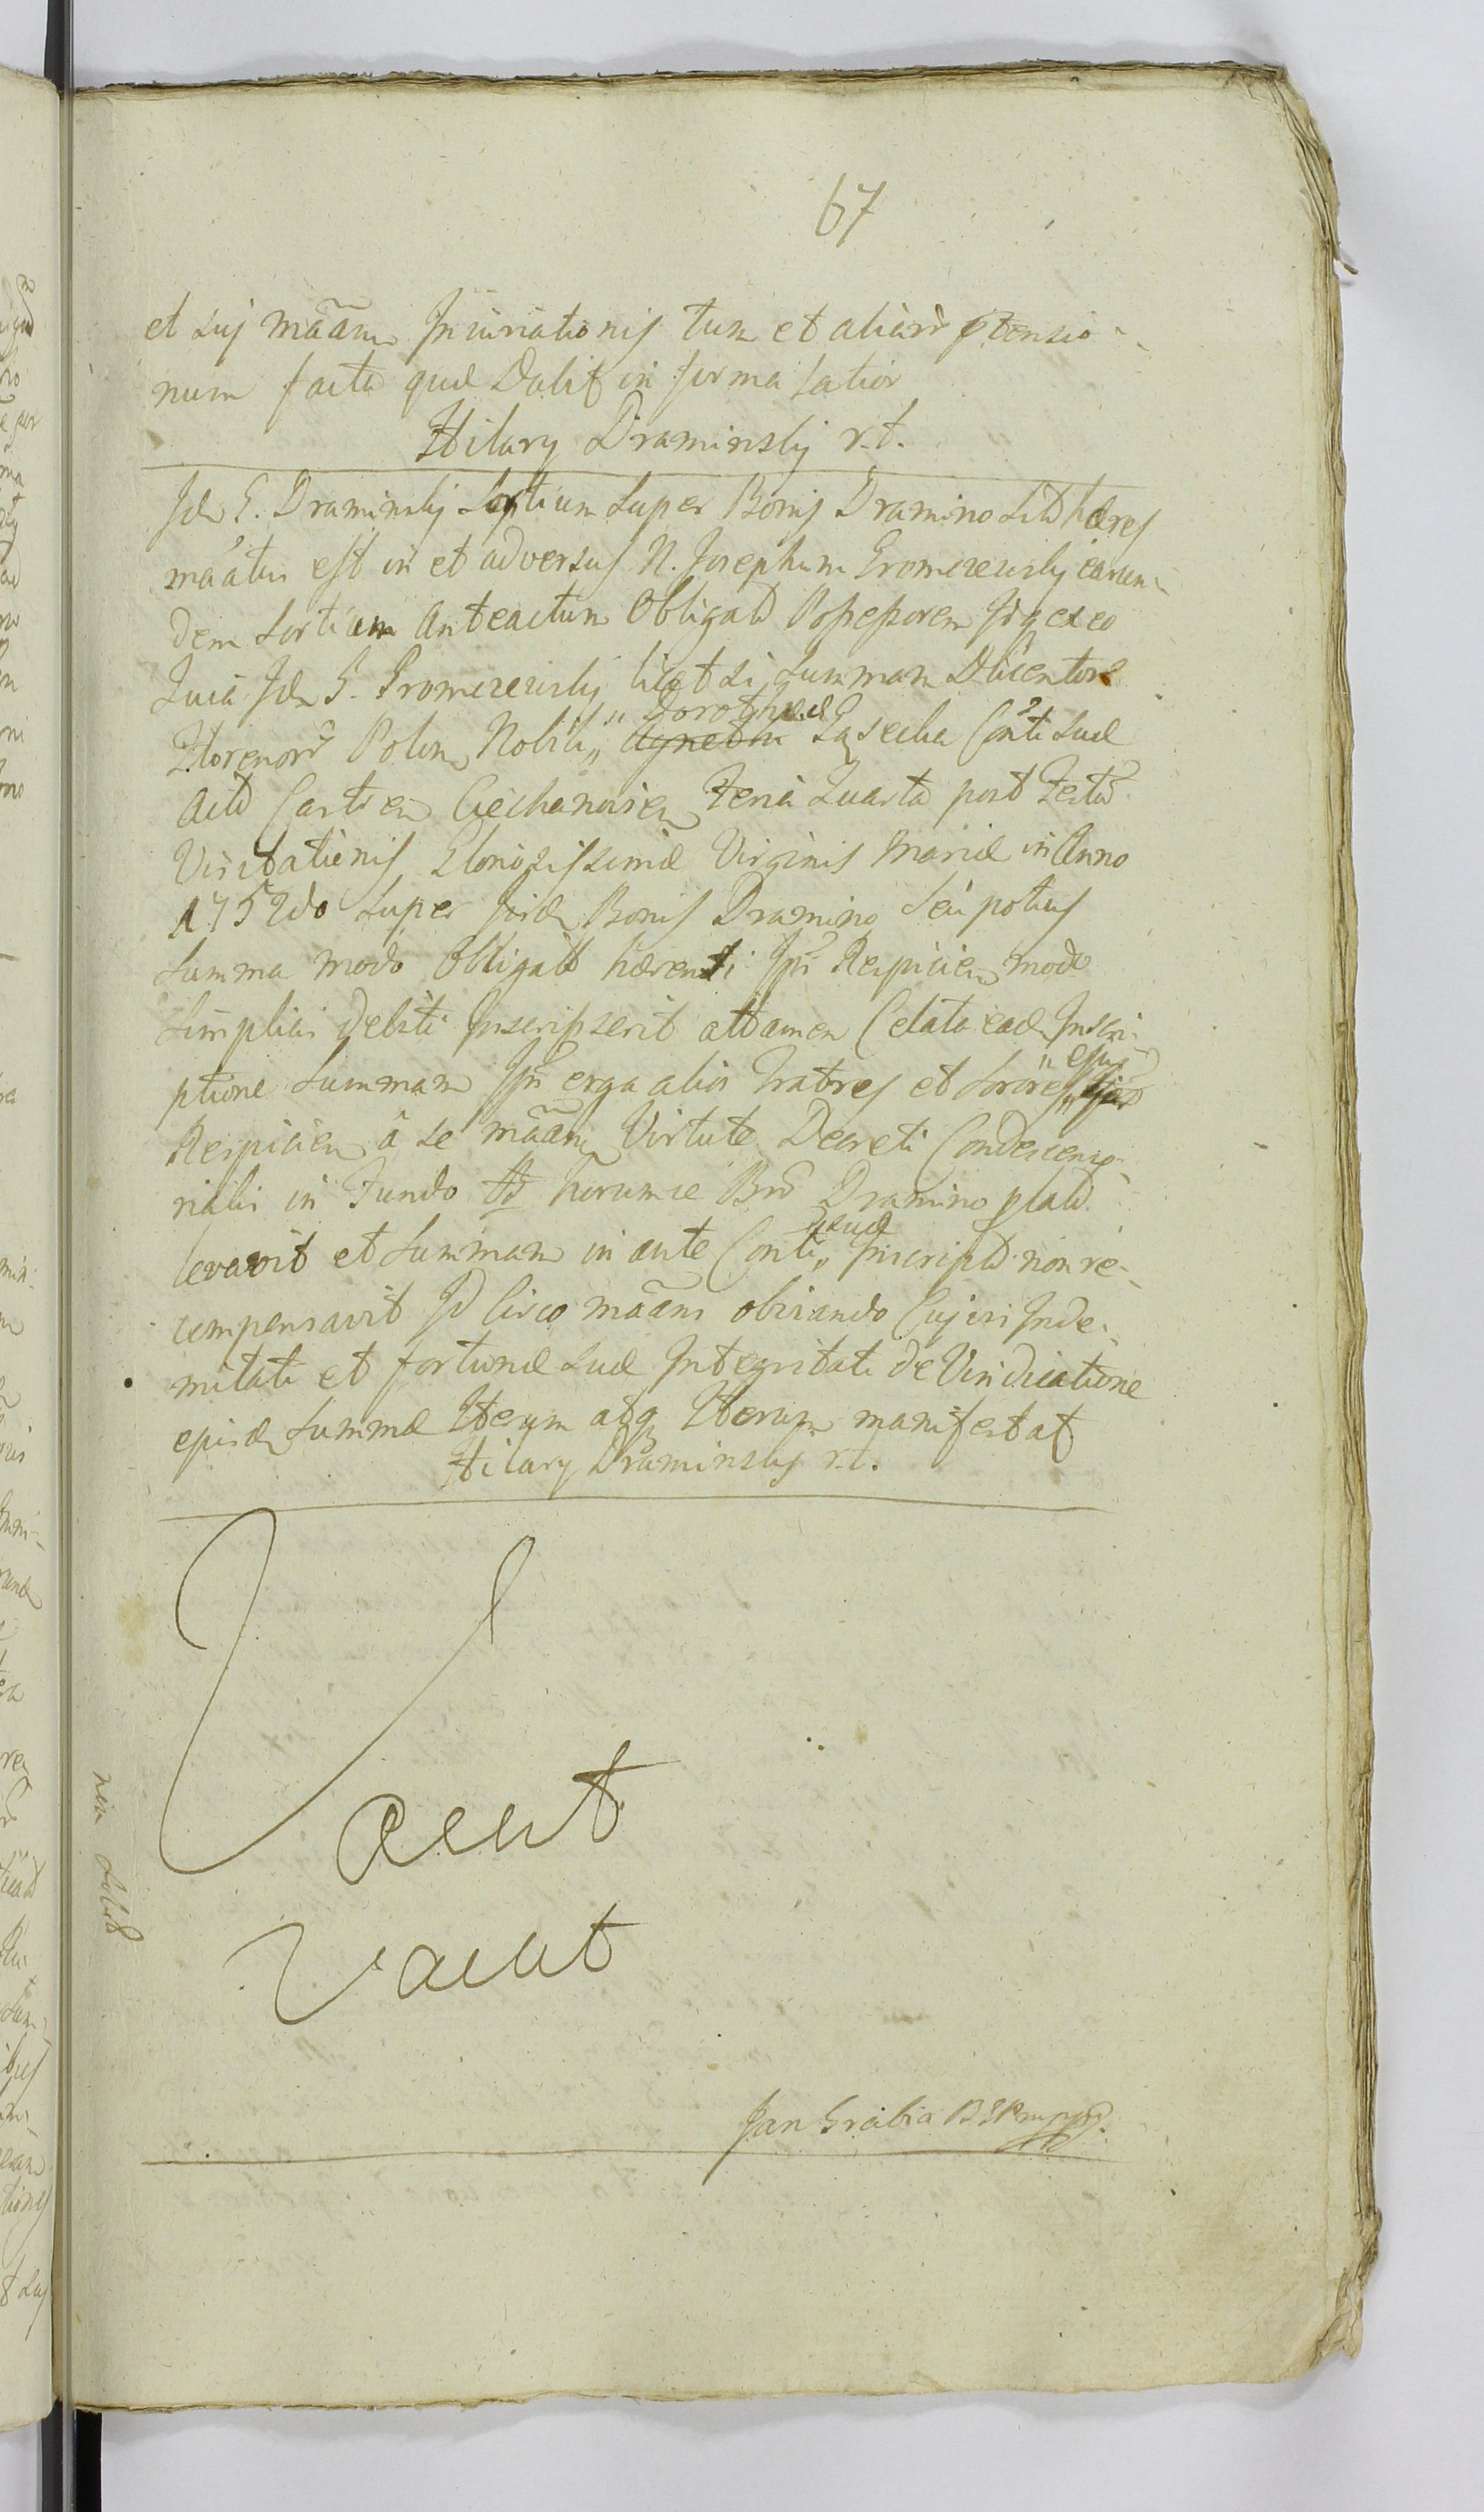 67
et suj mãam Injuriationis tum et aliarũ ptensio-
num facta quæ Dabit in forma latior
Hilary Draminskj r.t.
Idẽ G. Draminskj Sortium super Bonis Dramino Sitæ hæres
maãtus est in et adversus N. Josephum Gromczewskj earun-
dem Sortium Anteactum Obligatt Possessorem Idq ex eo
Quia Idẽ G. Gromczewskj licet si Summam Ducentorũ
Florenorũ Polon Nobili „Dorotheæ Gąsecka Conti Suæ
Actis Castren Ciechanovien Feria Quarta post Festũ
Visitationis Gloriosissimæ Virginis Mariæ in Anno
1752do super Iisdẽ Bonis Dramino seu potius
Summa modo Obligatt hærenti Ipũ Respicien modo
Simplicis Debiti Inscripserit attamen Celata eadẽ Inscri-
ptione Summam Ipũ erga alios Fratres et Sorores „ejus
Respicien â se mãam Virtute Decreti Condescenso-
rialis in Fundo horumce Bnõ Dramino plati
levavit et Summam in ante Conti „suæ Inscriptã non re-
compensavit Id Circo mãans obviando Cujusvi Inde-
mnitati et fortunæ suæ Integritati de Vindicatione
ejusdẽ Summæ Iterum atq Iterum manifestat
Hilary Draminskj r.t.
Vacat
Vacat
Jan Grabia